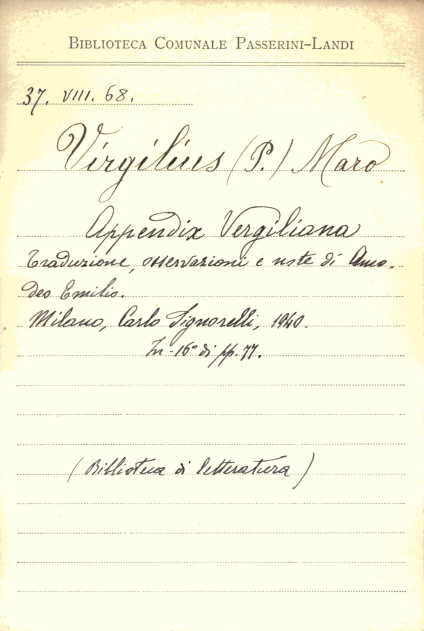 BIBLIOTECA COMUNALE PASSERINI-LANDI
37. VIII. 68.
Virgilius (P.) Maro
Appendix Vergiliana
Traduzione, osservazioni e note di Ame-
deo Emilio.
Milano, Carlo Signorelli, 1940.
In-16° di pp. 77.
(Biblioteca di letteratura)